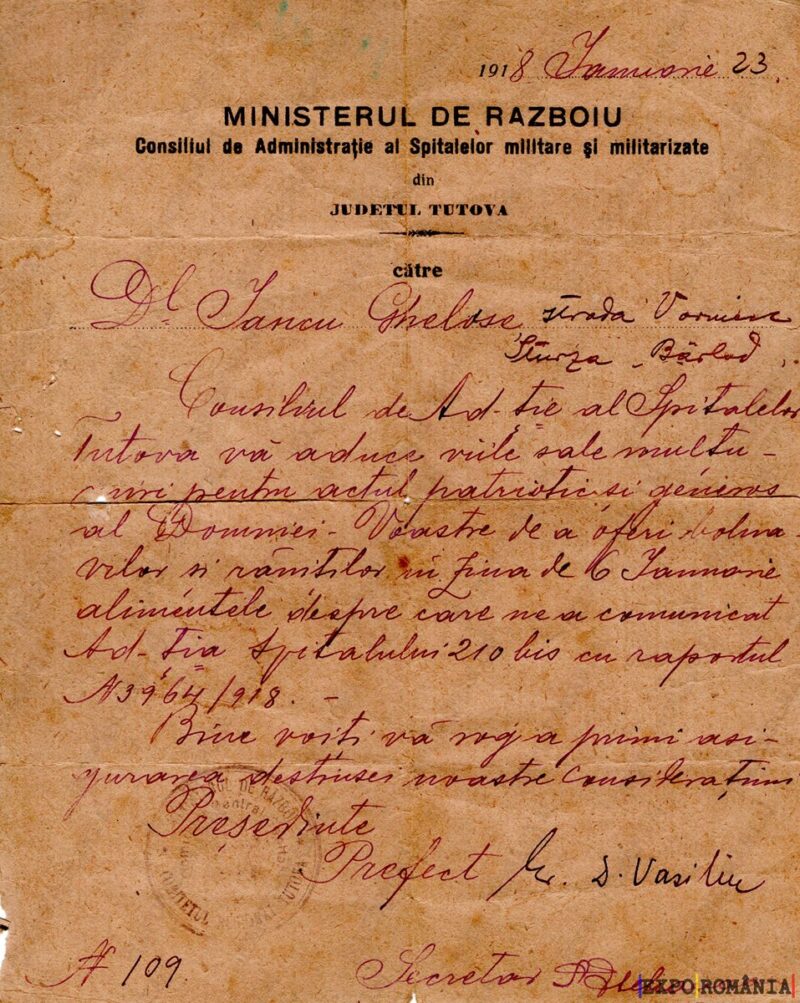 1918 Ianuarie 23.
MINISTERUL DE RAZBOIU
Consiliul de Administrație al Spitalelor militare și militarizate
din
JUDETUL TUTOVA
către
Dl Iancu Ghelose strada Vornicu
Sturza, Bârlad.
Consiliul de Ad-ție al Spitalelor
Tutova vă aduce viile sale multu-
miri pentru actul patriotic si generos
al Domniei-Voastre de a oferi bolna-
vilor si răniților in ziua de 6 Ianuarie
alimentele despre care ne a comunicat
Ad-ția Spitalului 210 bis cu raportul
N 3964/918. -
Bine voiți vă rog a primi asi-
gurarea destinsei noastre considerațiuni
Președinte
Prefect Gr. D. Vasiliu
MINISTERUL DE RAZBOIU
JUDETUL TUTOVA
N 109.
Secretar
EXPO ROMÂNIA